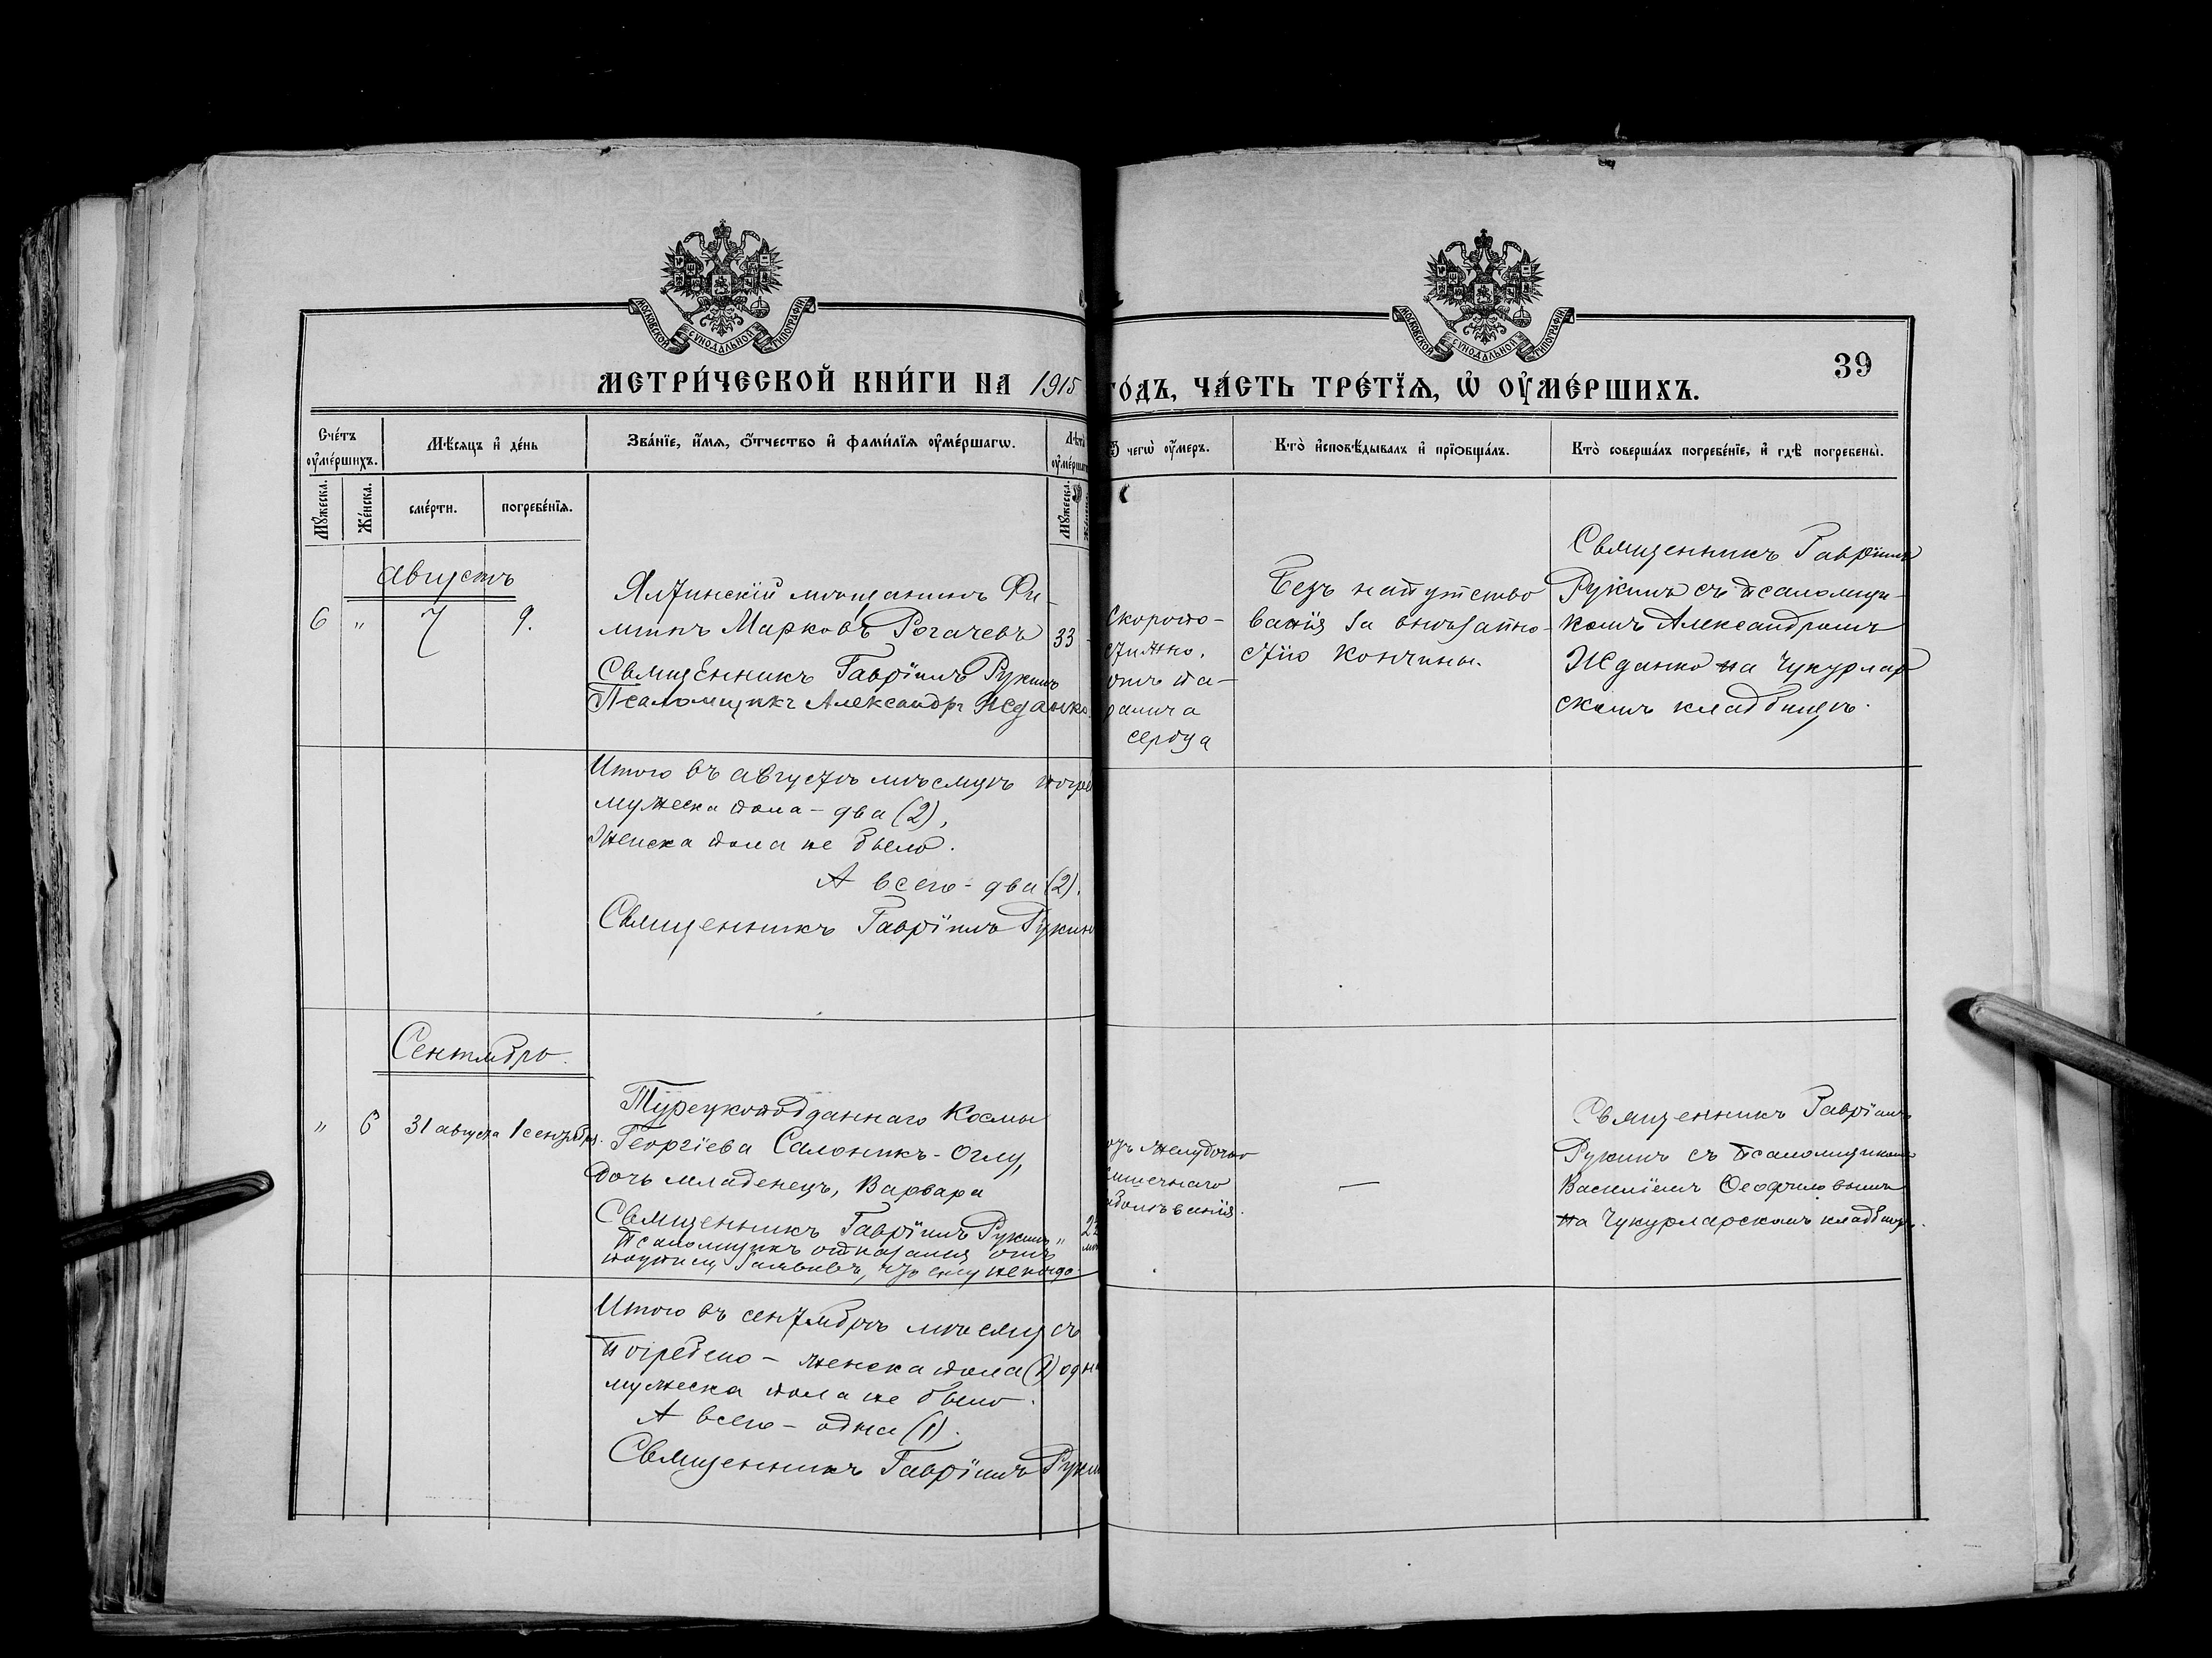 МОСКОВСКОЙ СУНОДАЛЬНОЙ ТИПОГРАФІИ
МОСКОВСКОЙ СУНОДАЛЬНОЙ ТИПОГРАФІИ
39
МЕТРИ́ЧЕСКОЙ КНИ́ГИ НА 1915 ГО́ДЪ, ЧА́СТЬ ТРЕ́ТЇѦ, Ѡ҆ ОУ҆МЕ́РШИХЪ.
Сче́тъ оу҆ме́ршихъ.
Мѣ́сяцъ и҆ де́нь
Зва́нїе, и҆́мѧ, ѻ҆́тчество и҆ фами́лїѧ оу҆ме́ршагѡ.
Лѣ́та оу҆ме́ршагѡ
Ѿ чегѡ̀ оу҆́меръ.
Кто̀ и҆сповѣ́дывалъ и҆ прїѡбща́лъ.
Кто̀ соверша́лъ погребе́нїе, и҆ гдѣ̀ погребены̀.
Мꙋ́жеска.
Же́нска.
сме́рти.
погребе́нїѧ.
Мꙋ́жеска.
Августъ
6 " 7 9.
Ялтинскій мѣщанинъ Фи-
липъ Марковъ Рогачевъ
33
Священникъ Гавріилъ Рукинъ
Псаломщикъ Александръ Жданко
Скоропо-
стижно,
отъ па-
ралича
сердца
Безъ напутство
ванія за внезапно-
стію кончины.
Священникъ Гавріилъ
Рукинъ съ псаломщи-
комъ Александромъ
Жданко на Чукурлар
скомъ кладбищѣ.
Итого въ августѣ мѣсяцѣ погреб
мужеска пола - два (2),
женска пола не было.
А всего - два (2).
Священникъ Гавріилъ Рукинъ
Сентябрь.
" 6 31 августа 1 сентября.
Турецкоподданнаго Космы
Георгіева Салоникъ-Оглу,
дочь младенецъ, Варвара
Священникъ Гавріилъ Рукинъ "
Псаломщикъ отказался отъ
подписи заявивъ, что ему некогда
желудочно
кишечнаго
заболѣванія.
—
Священникъ Гавріилъ
Рукинъ съ псаломщикомъ
Василіемъ Ѳеофиловымъ
на Чукурларскомъ кладбищѣ.
Итого въ сентябрѣ мѣсяцѣ
погребено - женска пола (1) одна
мужеска пола не было.
А всего - одна (1).
Священникъ Гавріилъ Рукинъ